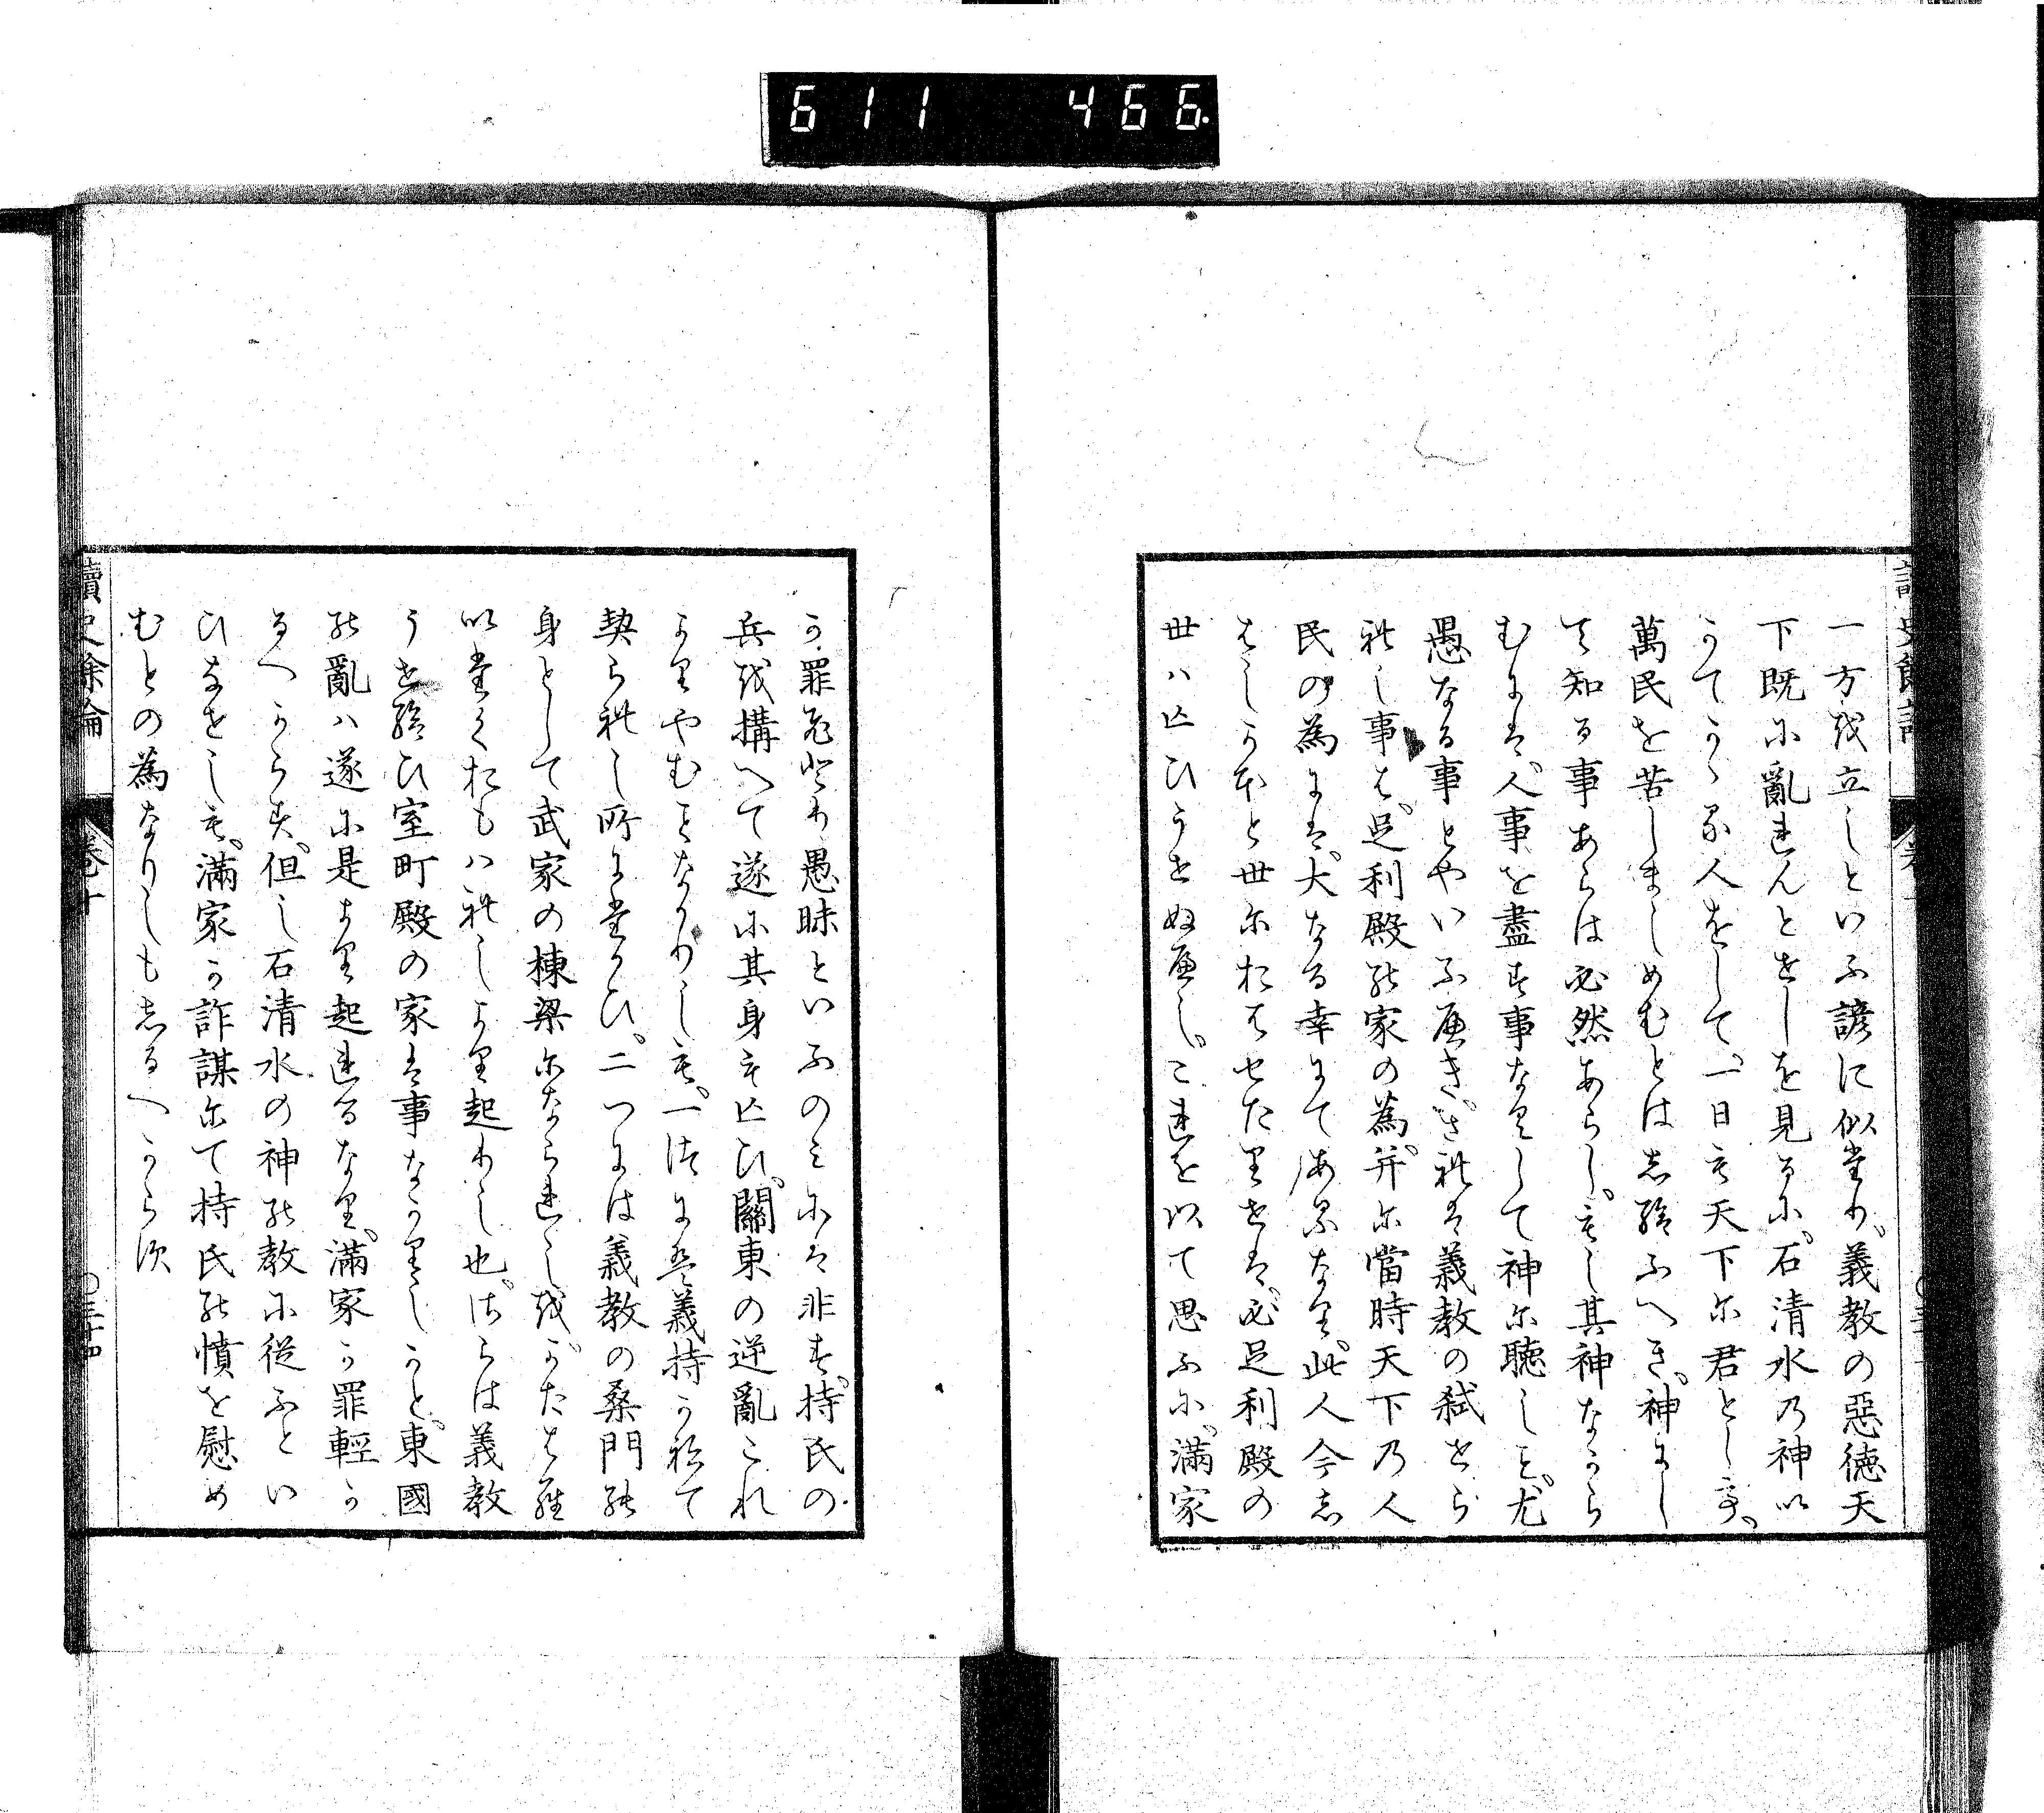 611 466.
一方或立しといふ諺に似たり、義教の惡徳天
下既に亂れんとせしを見るに、石清水の神い
かてかゝる人をして、一日も天下に君とし、
萬民を苦しましめむとはし給ふへき、神にし
て知る事あらは必然あらし、もし其神なから
むには、人事を盡す事なくして神に聴しを、尤
愚なる事とやいふへき、されは義教の弑せら
れし事は、足利殿の家の為、并に當時天下の人
民の為には、大なる幸にてありしなり、此人今し
はしかほと世におはせたりせは、必足利殿の
世はヒひうせぬへし、これを以て思ふに、滿家
か罪は愚昧といふのみには非す、持氏の
兵を構へて遂に其身もヒひ、關東の逆亂これ
よりやむことなかりしも、一つには義持かねて
契られし所にたかひ、二つには義教の桑門の
身として武家の棟梁になられしを、かたはら
いたくおもはれしより起りし也、さらは義教
うせ給ひ室町殿の家は事なかりしかと、東國
の亂ハ遂に是より起れるなり、滿家か罪輕か
るへからす、但し石清水の神の教に從ふとい
ひなせしも、滿家か詐謀にて持氏の憤を慰め
むとの為なりしもしるへからす
讀史餘論 卷十 〇三十四